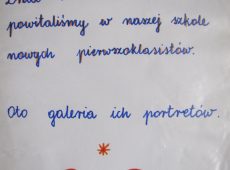 powitaliśmy w naszej szkole
nowych pierwszoklasistów.
Oto galeria ich portretów.